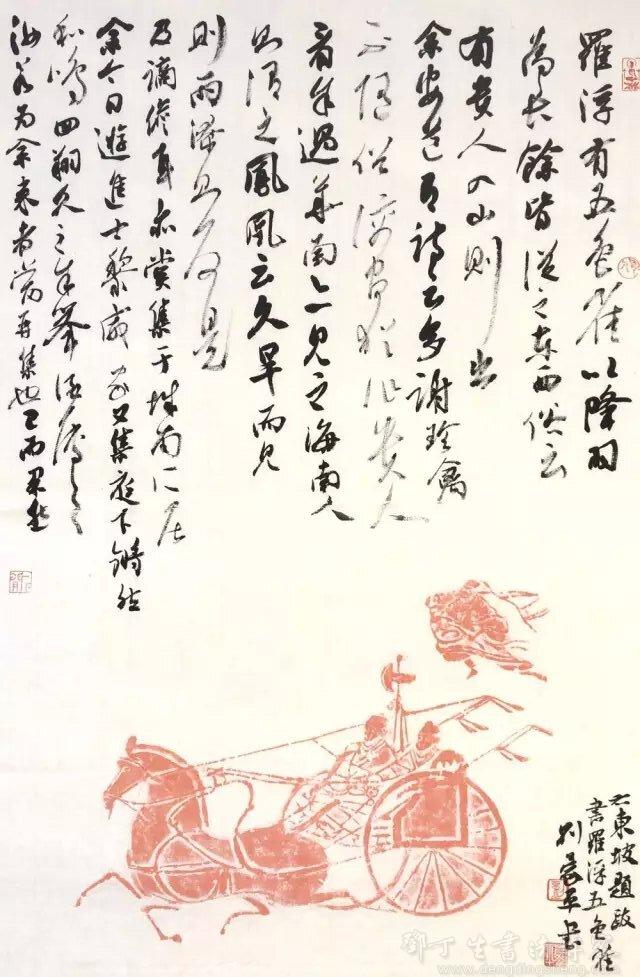 羅浮有五色雀以絳羽
為長餘皆從之東西俗云
有貴人入山則出
余安道有詩云多謝珍禽
不隨俗謫官猶作貴人
看余過華南亦見之海南人
則謂之鳳凰云久旱而見
則雨潦則反是
及謫儋耳亦嘗集于城南所居
余今日遊進士黎威家又集庭下鏘然
和鳴回翔久之余舉酒祝之
汝若為余來者當再集也已而果然
右東坡題跋
書羅浮五色雀
刘平书
鄧丁生書法
www.dengdingsheng.com